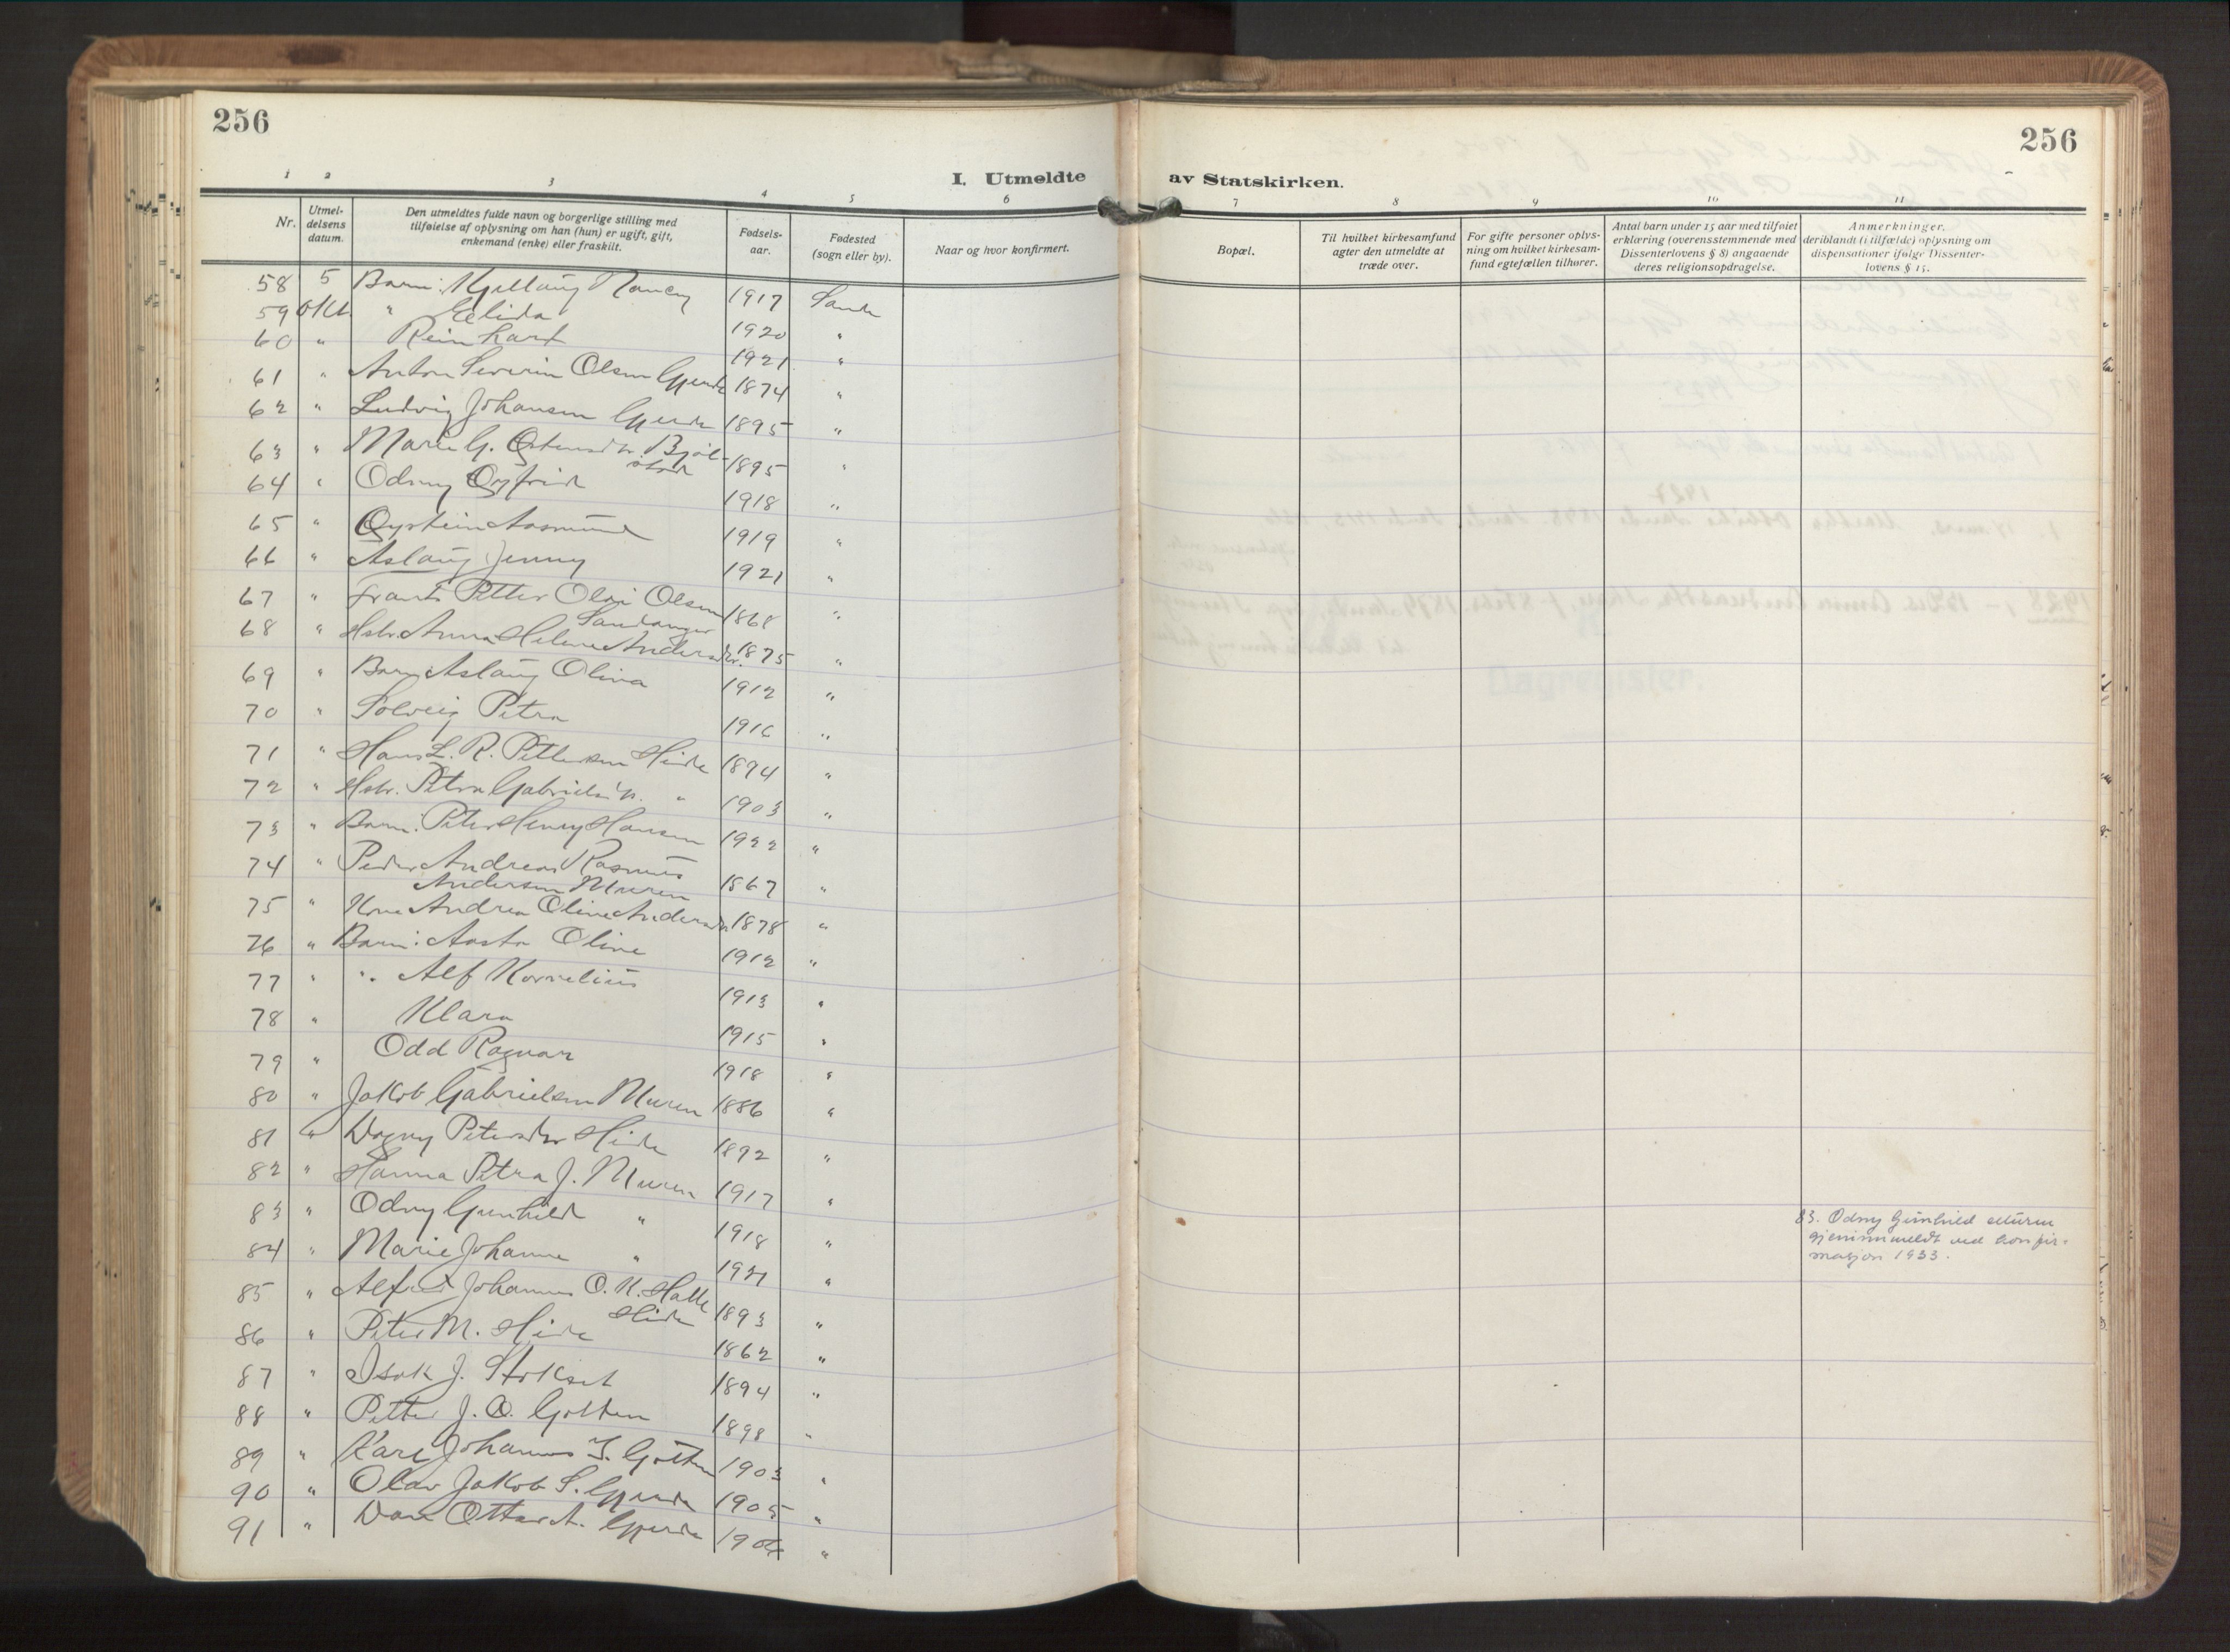 256
256
I. Utmeldte av Statskirken.
1 2 3 4 5 6 7 8 9 10 11
Nr.
Utmel-
delsens
datum.
Den utmeldtes fulde navn og borgerlige stilling med
tilføielse af oplysning om han (hun) er ugift, gift,
enkemand (enke) eller fraskilt.
Fødsels-
aar.
Fødested
(sogn eller by).
Naar og hvor konfirmert.
Bopæl.
Til hvilket kirkesamfund
agter den utmeldte at
træde over.
For gifte personer oplys-
ning om hvilket kirkesam-
fund egtefællen tilhører.
Antal barn under 15 aar med tilføiet
erklæring (overensstemmende med
Dissenterlovens § 8) angaaende
deres religionsopdragelse.
Anmerkninger,
deriblandt (i tilfælde) oplysning om
dispensationer ifølge Dissenter-
lovens § 15.
58 5 Barn: Kjellaug Nancy 1917 Sande
59 Okt. " Elida 1920 "
60 " Reinhart 1921 "
61 " Anton Severin Olsen Gjerde 1874 "
62 " Ludvig Johansen Gjerde 1895 "
63 " Marie G. 1895 "
64 " Odny Øyfrid 1918 "
65 " Øystein Aasmund 1919 "
66 " Aslaug Jenny 1921 "
67 " Frants Petter Olai Olsen
Sandanger 1868 "
68 " Hstr. Anna Helene Andersdr. 1875 "
69 " Barn: Aslaug Olina 1912 "
70 " Solveig Petra 1916 "
71 " Hans L. R. Pettersen Heide 1894 "
72 " Hstr. Petra Gabrielsdr. " 1903 "
73 " Barn: Peter Henry Hansen 1922 "
74 " Peder Andreas Rasmus
Andersen Muren 1867 "
75 " Kone Andrea Oline Andersdr. 1878 "
76 " Barn: Aasta Oline 1912 "
77 " " Alf Kornelius 1913 "
78 " Klara 1915 "
79 " Odd Ragnar 1918 "
80 " Jakob Gabrielsen Muren 1886 "
81 " Dagny Petersdr Heide 1892 "
82 " Hanna Petra J. Muren 1917 "
83 " Odny Gunhild " 1918 "
84 " Marie Johanne " 1921 "
85 " Alfred Johannes O. K. Halle
Heide 1893 "
86 " Peter M. Heide 1862 "
87 " Isak J. Stokset 1894 "
88 " Petter J. O. Gjotten 1898 "
89 " Karl Johannes J. Gjotten 1903 "
90 " Olav Jakob S. Gjerde 1905 "
91 " Ottar A. Gjerde "
83. Odny Gunhild Muren
gjeninnmeldt ved konfir-
masjon 1933.